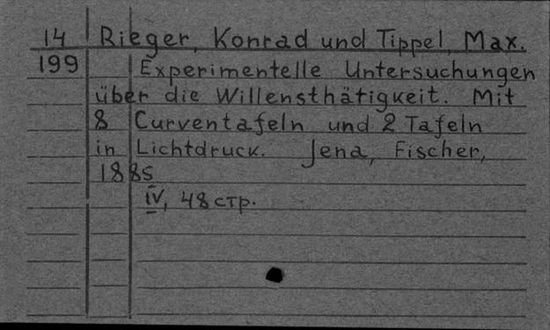 14 Rieger, Konrad und Tippel, Max.
199 Experimentelle Untersuchungen
über die Willensthätigkeit. Mit
8 Curventafeln und 2 Tafeln
in Lichtdruck. Jena, Fischer,
1885
IV, 48 стр.